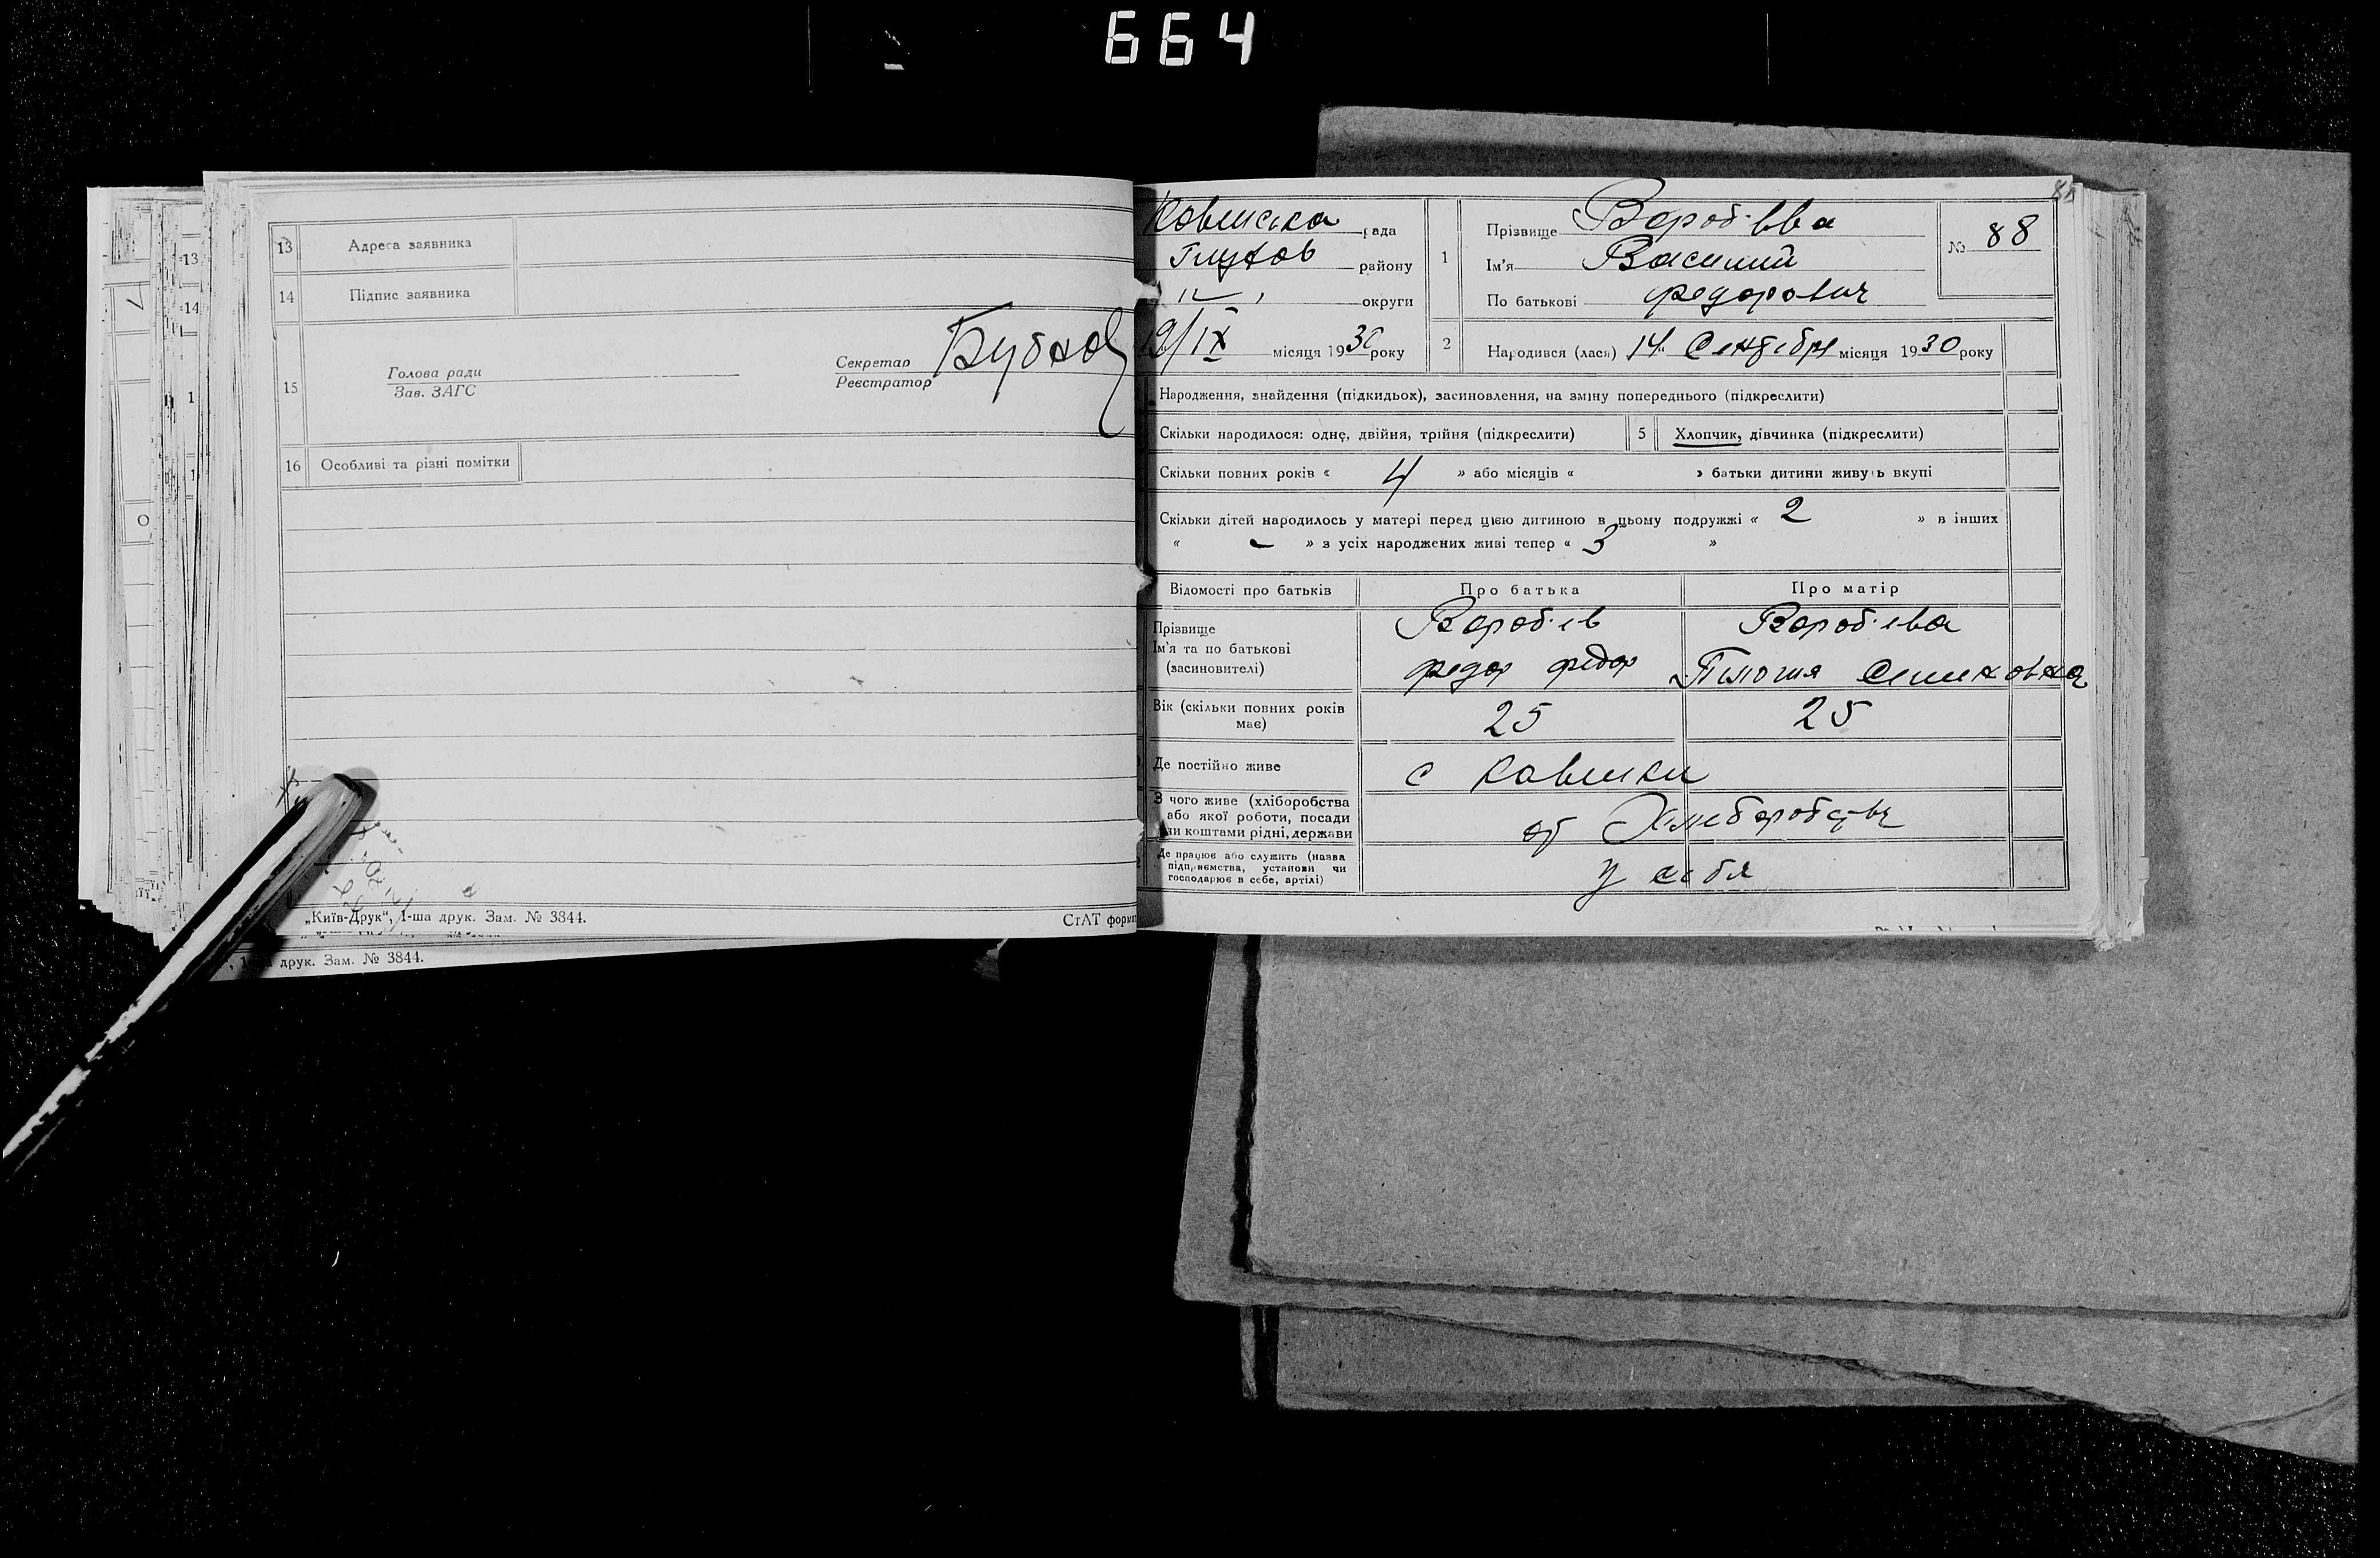 664
13 Адреса заявника
14 Підпис заявника
15 Голова ради
Зав. ЗАГС
Секретар
Реєстратор
16 Особливі та різні помітки
„Київ-Друк“, 1-ша друк. Зам. № 3844.
СтАТ форма
друк. Зам. № 3844.
рада
Глухов району
округи
19/IX місяця 1930 року
1 Прізвище Вороб·ьва
Ім'я Василий
По батькові Федорович
№ 88
2 Народився (лась) 14 Сентября місяця 1930 року
Народження, знайдення (підкидьох), засиновлення, на зміну попереднього (підкреслити)
Скільки народилося: одне, двійня, трійня (підкреслити) 5 Хлопчик, дівчинка (підкреслити)
Скільки повних років « 4 » або місяців « » батьки дитини живуть вкупі
Скільки дітей народилось у матері перед цією дитиною в цьому подружжі « 2 » в інших
« - » з усіх народжених живі тепер « 3 »
Відомості про батьків Про батька Про матір
Прізвище Вороб·ев Вороб·ева
Ім'я та по батькові
(засиновителі) Федор Федор
Вік (скільки повних років
має) 25 25
Де постійно живе с
З чого живе (хліборобства
або якої роботи, посади
чи коштами рідні, держави
от
Де працює або служить (назва
підприємства, установи чи
господарює в себе, артілі)
у себя